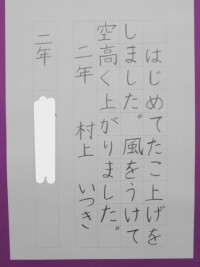 はじめてたこ上げを
しました。風をうけて
空高く上がりました。
二年　村上　いつき
二年